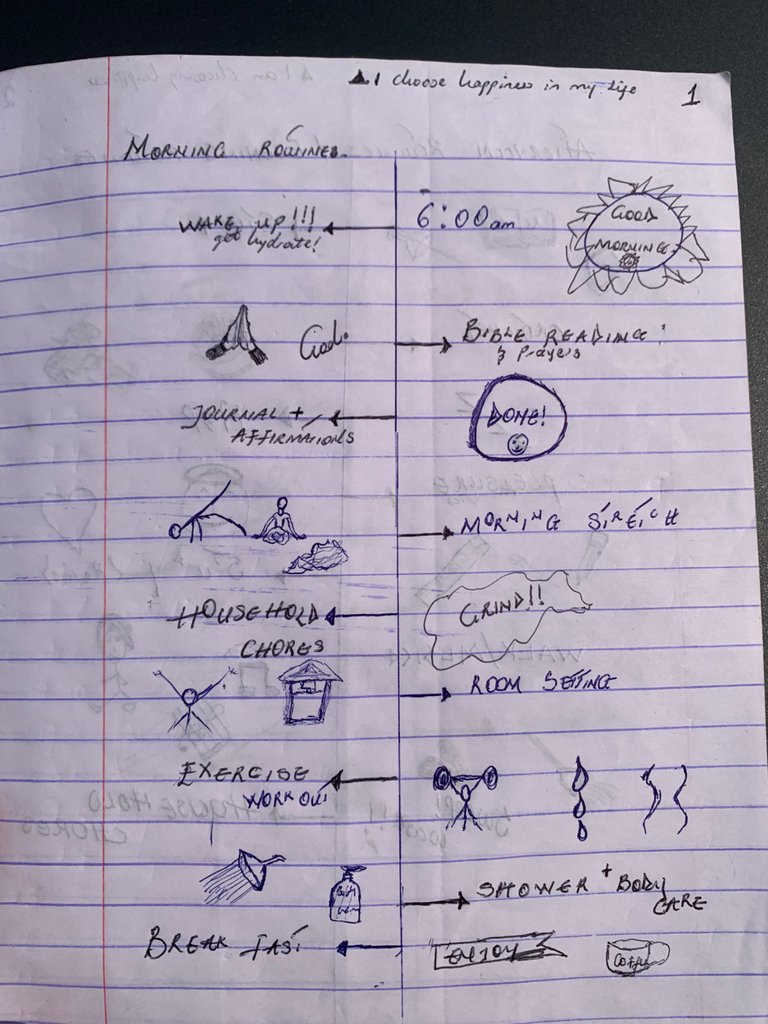 I choose happiness in my life
1
MORNING ROUTINES.
WAKE UP!!!
get hydrate!
6:00am
GOOD
MORNING.
God.
BIBLE READING
& Prayers
JOURNAL +
AFFIRMATIONS
DONE!
MORNING STRETCH
HOUSEHOLD
CHORES
GRIND!!
ROOM SETTING
EXERCISE
WORKOUT
SHOWER + BODY
CARE
BREAK FAST
ENJOY
Coffee